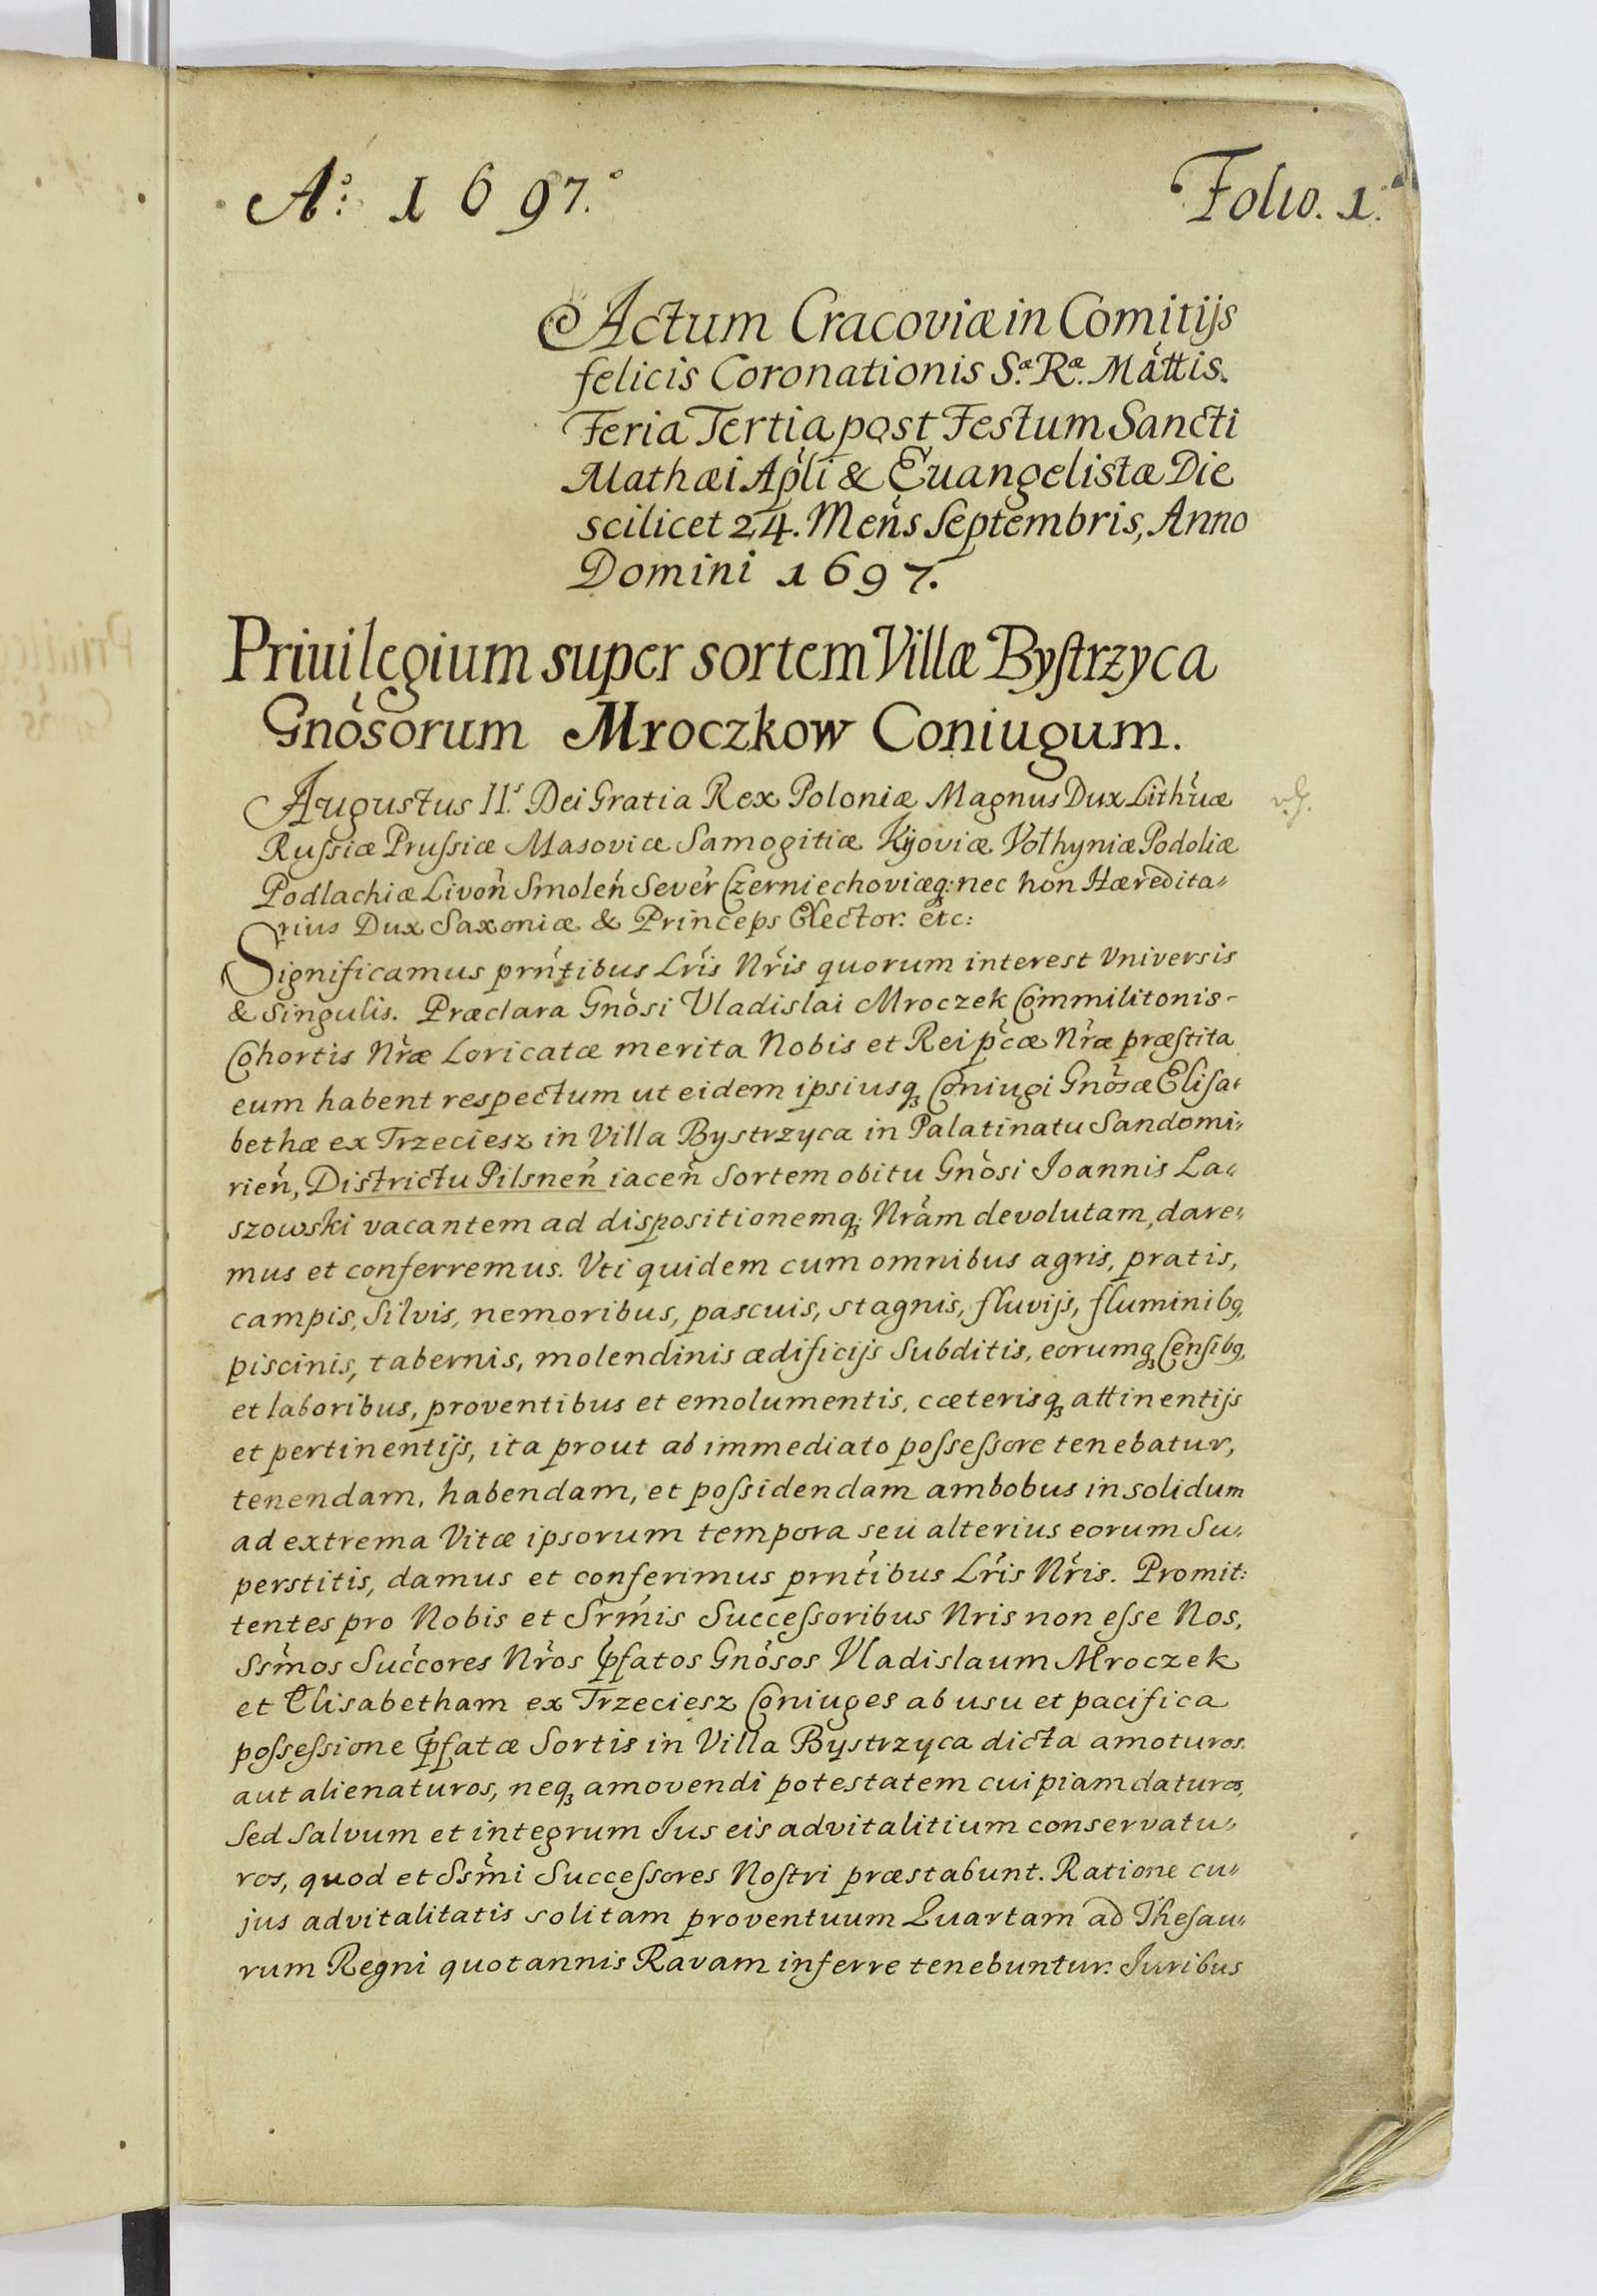 A°: 1697.°
Folio. 1.
Actum Cracoviæ in Comitijs
felicis Coronationis S.æ R.æ Mattis.
Feria Tertia post Festum Sancti
Mathæi Apli & Euangelistæ Die
scilicet 24. Mens Septembris, Anno
Domini 1697.
Priuilegium super sortem Villæ Byſtrzyca
Gnosorum Mroczkow Coniugum.
Augustus II.s Dei Gratia Rex Poloniæ Magnus Dux Lithuæ
Ruſsiæ Pruſsiæ Masoviæ Samogitiæ Kijoviæ Volhyniæ Podoliæ
Podlachiæ Livon Smolen Sever Czerniechoviæq; nec non Hæredita„
rius Dux Saxoniæ & Princeps Elector. etc:
Significamus prntibus Lris Nris quorum interest Vniversis
& Singulis. Præclara Gnosi Vladislai Mroczek Commilitonis-
Cohortis Nræ Loricatæ merita Nobis et Reipcæ Nræ præſtita
eum habent respectum ut eidem ipsiusq; Coniugi Gnosæ Eliſa„
bethæ ex Trzeciesz in Villa Bystrzyca in Palatinatu Sandomi„
rien, Districtu Pilsnen iacen Sortem obitu Gnosi Joannis La„
szowski vacantem ad dispositionemq; Nram devolutam, dare„
mus et conferremus. Vti quidem cum omnibus agris, pratis,
campis, Silvis, nemoribus, pascuis, stagnis, fluvijs, fluminibq,
piscinis, tabernis, molendinis ædificijs Subditis, eorumq; Cenſibq,
et laboribus, proventibus et emolumentis, cæterisq; attinentijs
et pertinentijs, ita prout ab immediato poſseſsore tenebatur,
tenendam, habendam, et poſsidendam ambobus in solidum
ad extrema Vitæ ipsorum tempora seu alterius eorum Su„
perstitis, damus et conferimus prntibus Lris Nris. Promit:
tentes pro Nobis et Srmis Succeſsoribus Nris non eſse Nos,
Ssmos Succores Nros Pfatos Gnosos Vladislaum Mroczek
et Elisabetham ex Trzeciesz Coniuges ab usu et pacifica
poſseſsione Pfatæ Sortis in Villa Bystrzyca dicta amoturos
aut alienaturos, neq; amovendi potestatem cuipiam daturos,
Sed Salvum et integrum Jus eis advitalitium conservatu„
ros, quod et Ssmi Succeſsores Noſtri præstabunt. Ratione cu„
jus advitalitatis solitam proventuum Quartam ad Theſau„
rum Regni quotannis Ravam inferre tenebuntur. Juribus